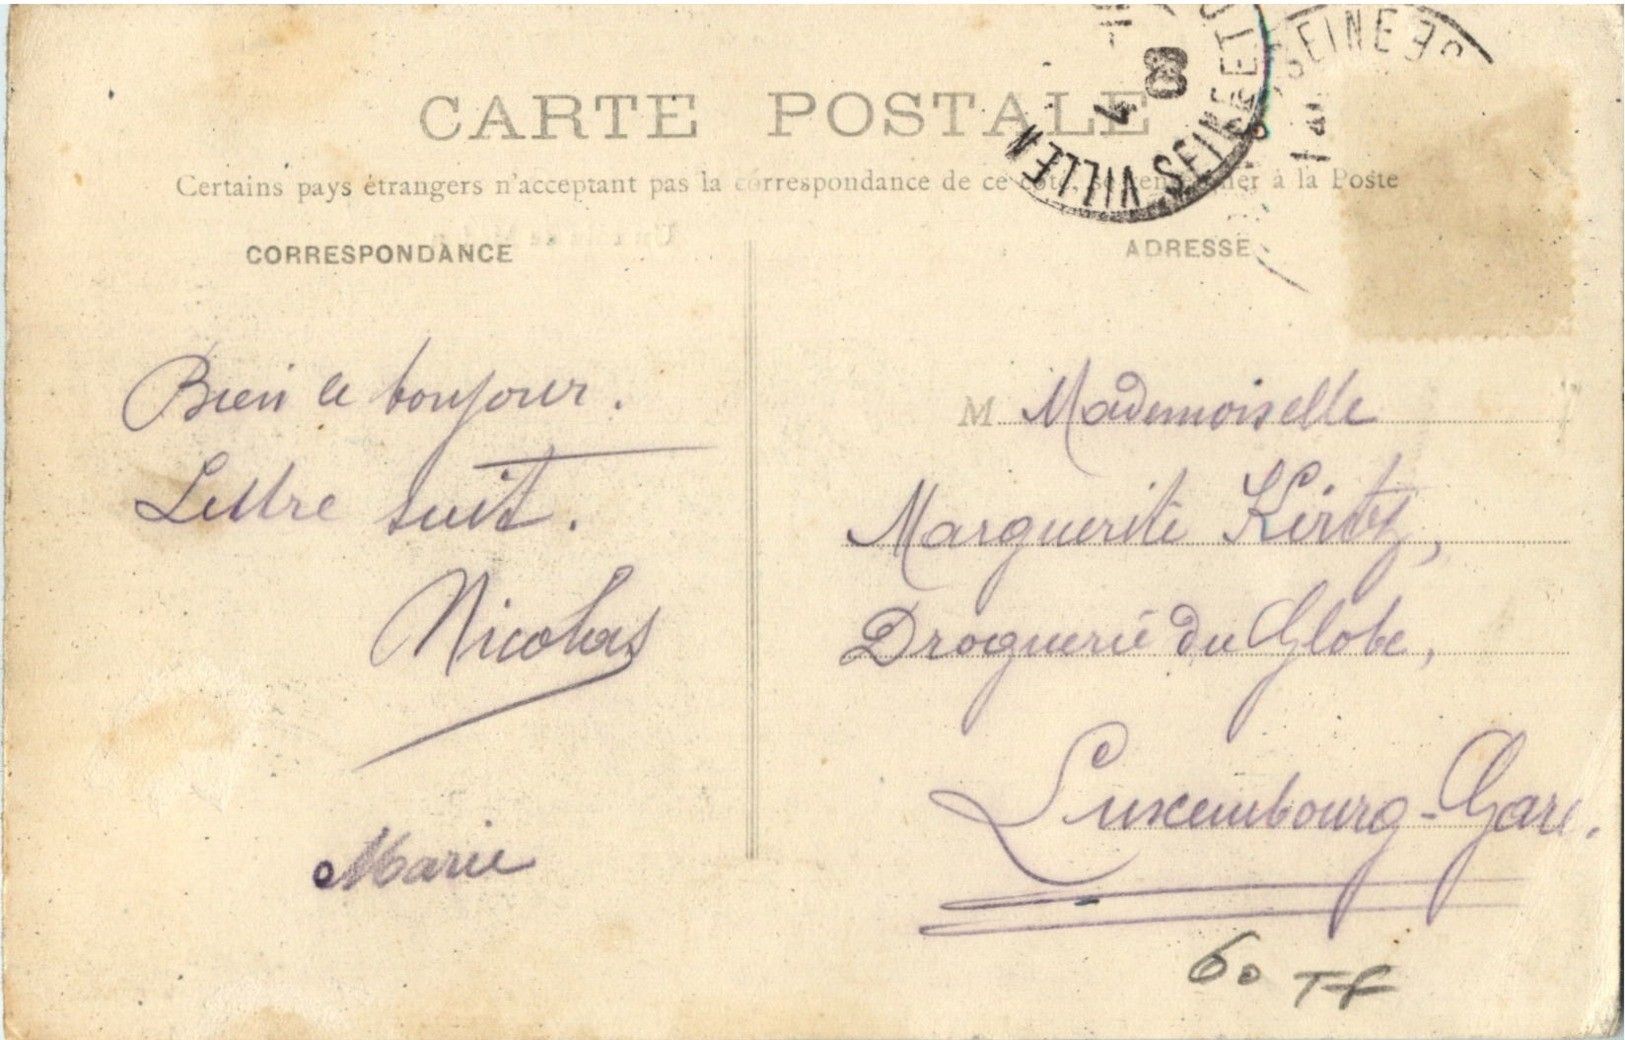 CARTE POSTALE
Certains pays étrangers n'acceptant pas la correspondance de ce côté, se renseigner à la Poste
CORRESPONDANCE
ADRESSE
Bien le bonjour.
Lettre suit.
Nicolas
Marie
M Mademoiselle
Marguerite Kirtz,
Droguerie du Globe,
Luxembourg-Gare.
60
VILLEN
SEINE ET
4
08
SEINE